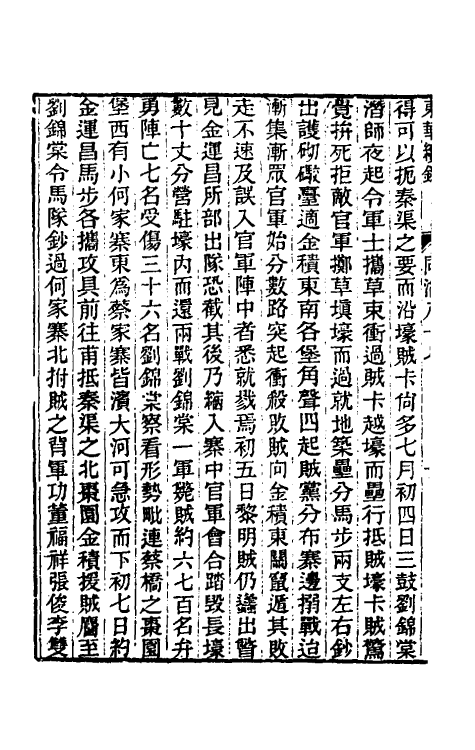 東華續錄 同治八十八
得可以扼秦渠之要而沿壕賊卡尙多七月初四日三鼓劉錦棠
潛師夜起令軍士攜草束衝過賊卡越壕而壘行抵賊壕卡賊驚
覺拚死拒敵官軍擲草塡壕而過就地築壘分馬步兩支左右鈔
出護砌礮壘適金積東南各堡角聲四起賊黨分布寨邊搦戰迫
漸集漸眾官軍始分數路突起衝殺敗賊向金積東關竄遁其敗
走不速及誤入官軍陣中者悉就戮焉初五日黎明賊仍議出暫
見金運昌所部出隊恐截其後乃縮入寨中官軍會合踏毀長壕
數十丈分營駐壕內而還兩戰劉錦棠一軍斃賊約六七百名弁
勇陣亡七名受傷三十六名劉錦棠察看形勢毗連蔡橋之棗園
堡西有小何家寨東爲蔡家寨皆濱大河可急攻而下初七日約
金運昌馬步各攜攻具前往甫抵秦渠之北棗園金積援賊麕至
劉錦棠令馬隊鈔過何家寨北拊賊之背軍功董福祥張俊李雙